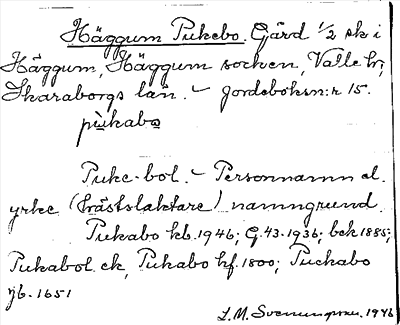 Häggum Pukebo. Gård 1/2 sk i
Häggum, Häggum socken, Valle hr;
Skaraborgs län. – Jordeboksn:r 15.
pùkabo
Puke-bol. – Personnamn el.
yrke (hästslaktare) namngrund.
Pukabo kb. 1946; G. 43. 1936; bck 1885;
Pukabol. ek, Pukabo hf. 1800; Puckabo
jb. 1651
1946